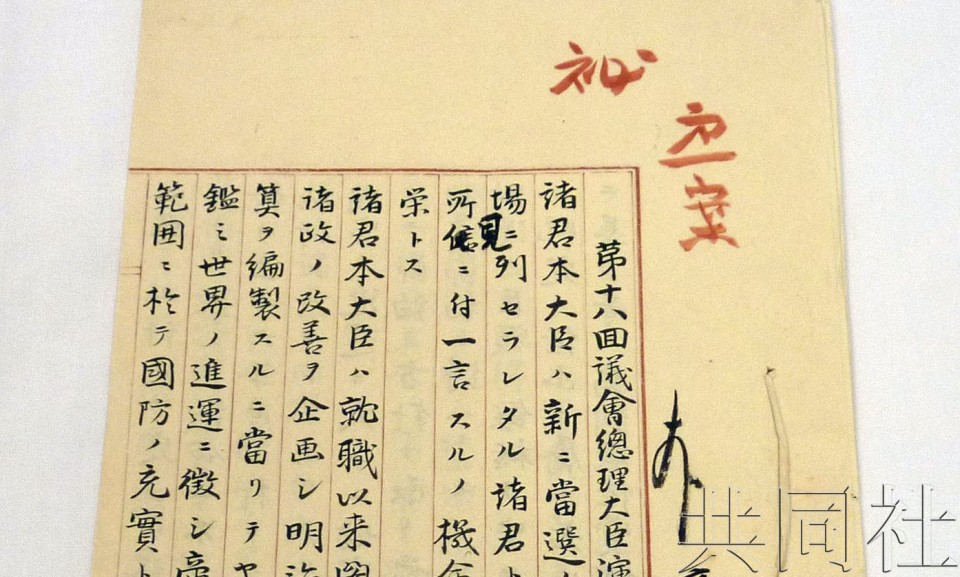 秘
案
苐十八回議會總理大臣演
諸君本大臣ハ新ニ當選ノ
場ニ列セラレタル諸君ト
所見ニ付一言スルノ機會
栄トス
諸君本大臣ハ就職以来國
諸政ノ改善ヲ企画シ明治
算ヲ編製スルニ當リテヤ
鑑ミ世界ノ進運ニ徴シ帝
範囲ニ於テ國防ノ充實ト
共同社